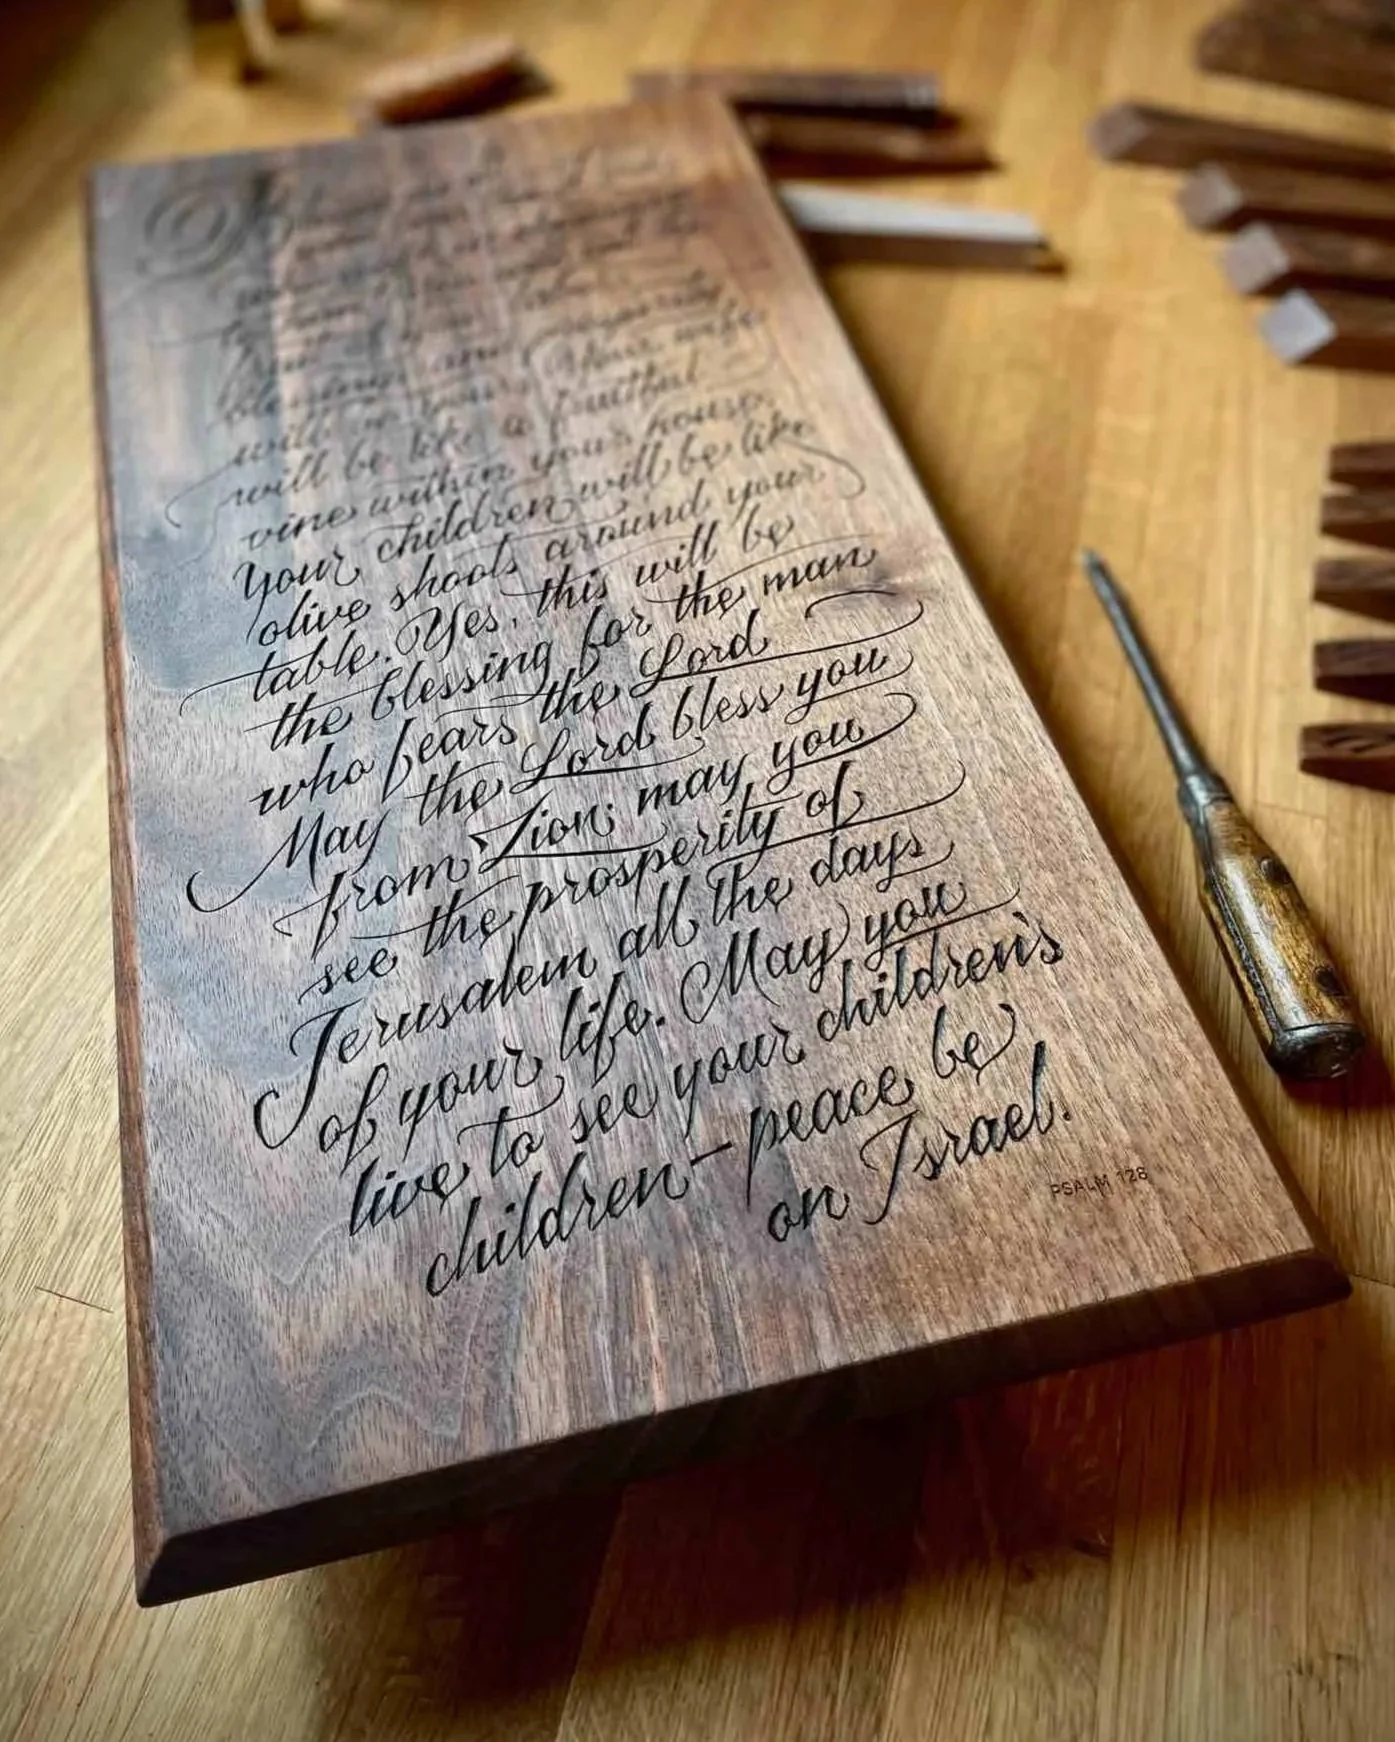 blessings and prosperity
will be yours. Your wife
will be like a fruitful
vine within your house;
your children will be like
olive shoots around your
table. Yes, this will be
the blessing for the man
who fears the Lord
May the Lord bless you
from Zion; may you
see the prosperity of
Jerusalem all the days
of your life. May you
live to see your children's
children – peace be
on Israel.
PSALM 128